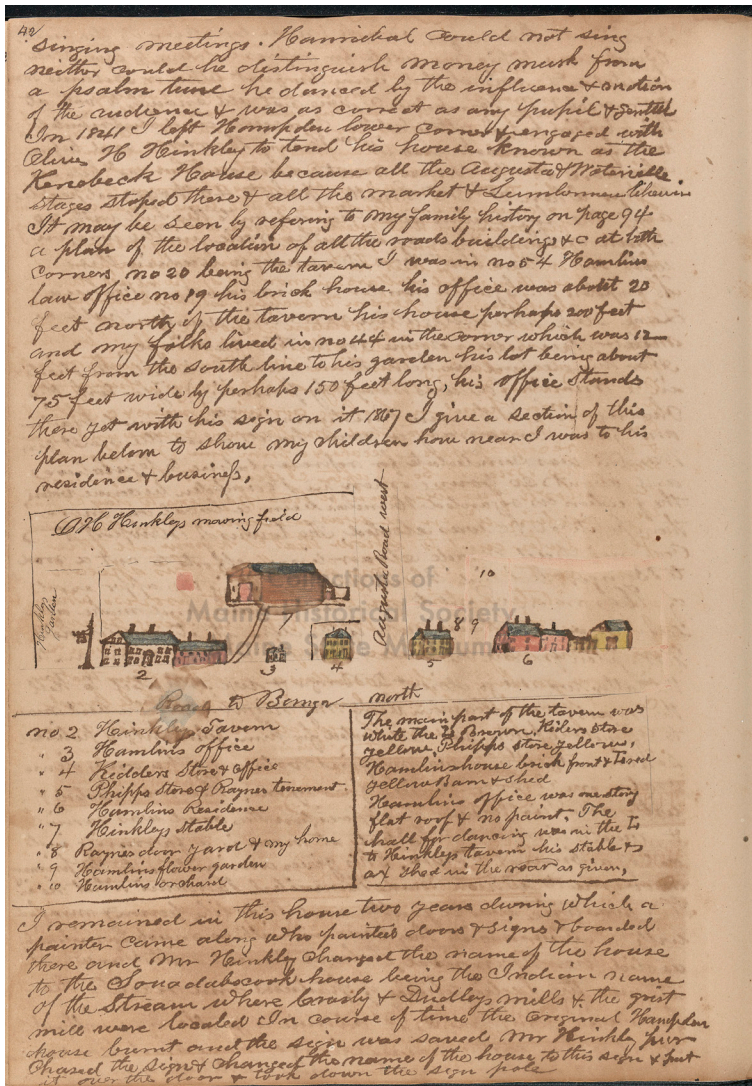 42
singing meetings. Hannibal could not sing
neither could he distinguish money musk from
a psalm tune he danced by the influence & motion
of the audience & was as correct as any pupil & gentle
In 1841 I left Hampden lower corner & engaged with
Olive H Hinkley to tend his house known as the
Kenebeck House because all the Augusta & Waterville
stages stoped there & all the market & Lumbermen likewise
It may be seen by refering to my family history on page 94
a plan of the location of all the roads buildings & c at both
corners no 20 being the tavern I was in no 54 Hamlins
law office no 19 his brick house his office was about 20
feet north of the tavern his house perhaps 200 feet
and my folks lived in no 44 in the corner which was 12
feet from the south line to his garden his lot being about
75 feet wide by perhaps 150 feet long, his office stands
there yet with his sign on it 1867 I give a section of this
plan below to show my children how near I was to his
residence & business.
O H Hinkleys mowing field
Augusta Road west
Hinkleys Garden
10
8 9
2 3 4 5 6
Collections of
Maine Historical Society
Maine State Museum
Road to Bangor north
no 2 Hinkleys Tavern
" 3 Hamlins office
" 4 Kidders Store & Office
" 5 Phipps Store & Raynes tenement
" 6 Hamlins Residence
" 7 Hinkleys stable
" 8 Raynes door yard & my home
" 9 Hamlins flower garden
" 10 Hamlins orchard
The main part of the tavern was
white the Ls Brown, Kiders store
yellow, Phipps store yellow,
Hamlins house brick front & Ls red
yellow Barn & shed
Hamlins office was one story
flat roof & no paint. The
hall for dancing was in the Ls
to Hinkleys tavern his stable &
ox shed in the rear as given,
I remained in this house two years during which a
painter came along who painted doors & signs & boarded
there and Mr Hinkley changed the name of the house
to the Souadabscook house being the Indian name
of the Stream where Crosby & Dudleys mills & the grist
mill were located In course of time the original Hampden
house burnt and the sign was saved Mr Hinkly pur
chased the sign & changed the name of the house to this sign & put
it over the door & took down the sign pole